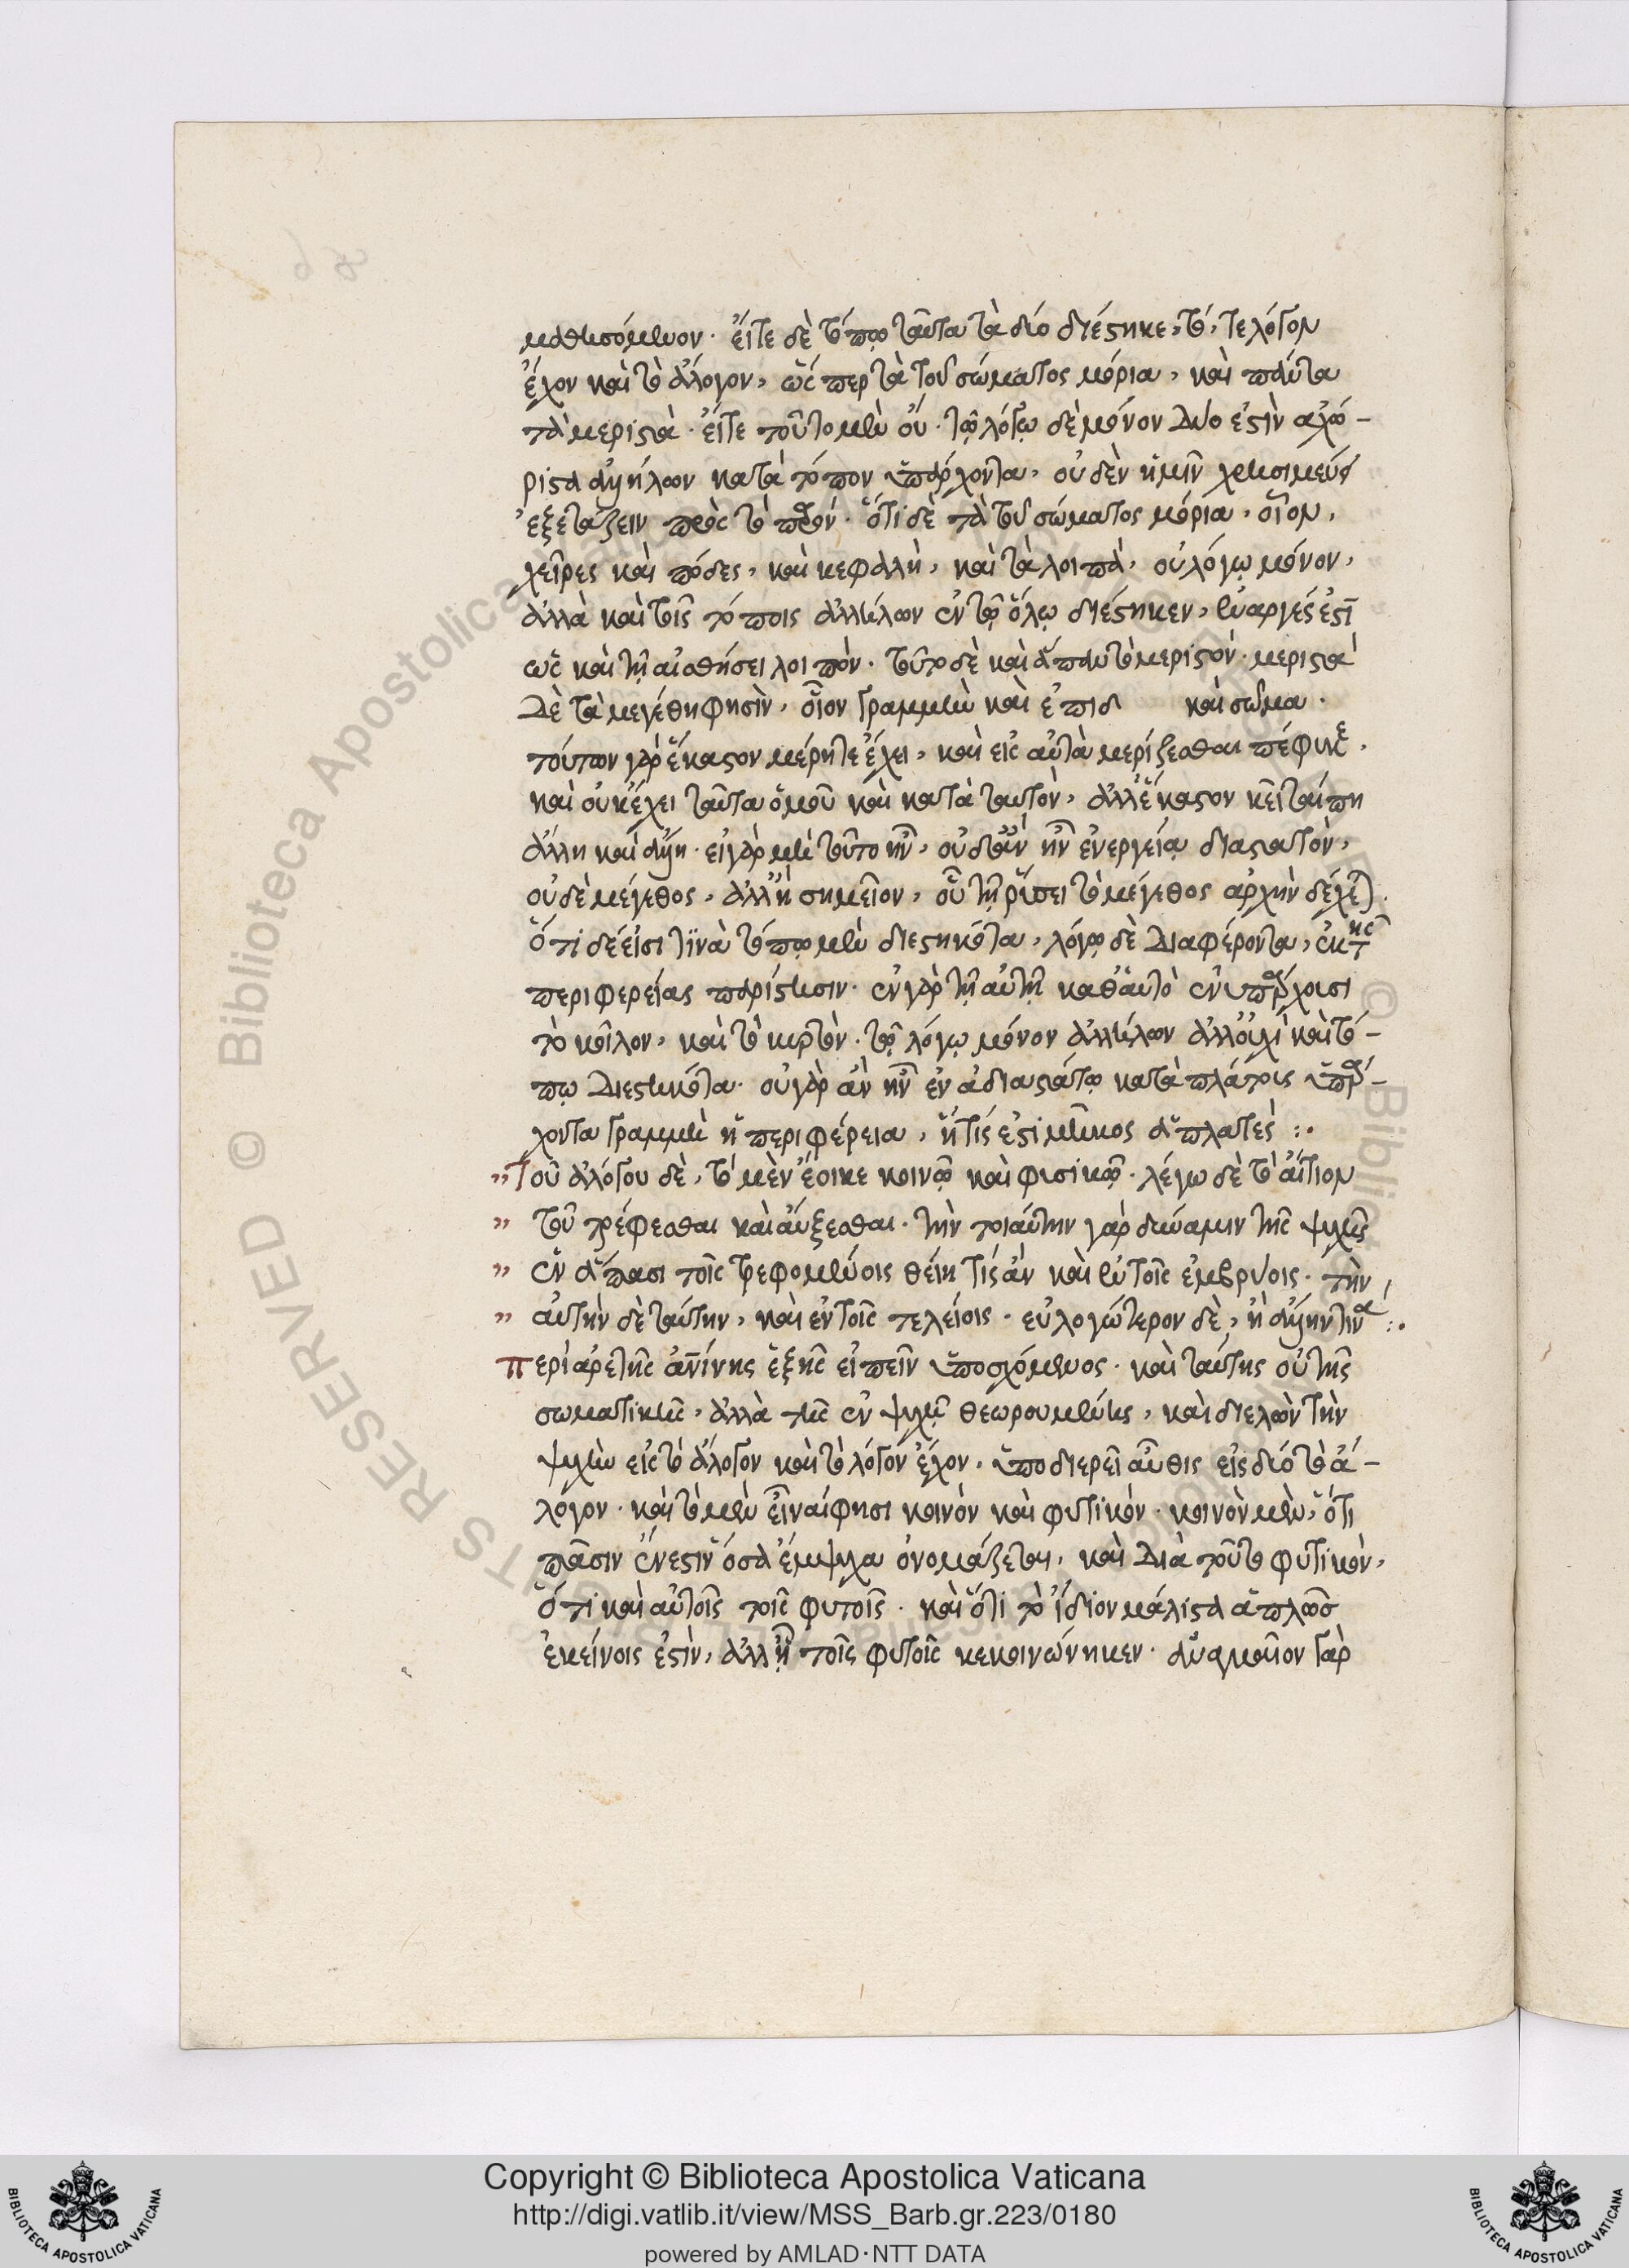 μαθησόμενον. εἴτε δὲ τόπῳ ταῦτα τὰ δύο διέστηκε, τό, τε λόγον
ἔχον καὶ τὸ ἄλογον, ὥσπερ τὰ τοῦ σώματος μόρια, καὶ πάντα
τὰ μεριστὰ. εἴτε τοῦτο μὲν οὔ. τῷ λόγῳ δὲ μόνον δύο ἐστὶν ἀχώ-
ριστα ἀλλήλων κατὰ τόπον ὑπάρχοντα, οὐδὲν ἡμῖν
ἐξετάζειν πρὸς τὸ παρόν. ὅτι δὲ τὰ τοῦ σώματος μόρια, οἷον,
χεῖρες καὶ πόδες, καὶ κεφαλὴ, καὶ τὰ λοιπὰ, οὐ λόγῳ μόνον,
ἀλλὰ καὶ τοῖς τόποις ἀλλήλων ἐν τῷ ὅλῳ διέστηκεν, ἐναργές ἐστι
ὡς καὶ τῇ αἰσθήσει λοιπὸν. τοῦτο δὲ καὶ ἅπαν τὸ μεριστόν. μεριστὰ
δὲ τὰ μεγέθη φησὶν, οἷον γραμμὴν καὶ ἐπιδ καὶ σῶμα.
τούτων γὰρ ἕκαστον μέρη τε ἔχει, καὶ εἰς αὐτὰ μερίζεσθαι πέφυκε.
καὶ οὐκ ἔχει ταῦτα ὁμοῦ καὶ κατὰ ταυτὸν, ἀλλ' ἕκαστον κεῖται
ἄλλη καὶ ἄλλη. εἰ γὰρ μὴ τοῦτο ἦν, οὐδ' ἂν ἦν ἐνεργείᾳ διαστατὸν,
οὐδὲ μέγεθος, ἀλλ' ἢ σημεῖον, οὗ τῇ ῥύσει τὸ μέγεθος ἀρχὴν δέχεται.
ὅτι δέ εἰσι τινὰ τόπῳ μὲν διεστηκότα, λόγῳ δὲ διαφέροντα, ἐκ τῆς
περιφερείας παρίστησιν. ἐν γὰρ τῇ αὐτῇ καθ' αὑτὸ ἐνυπάρχουσι
τὸ κοῖλον, καὶ τὸ κυρτὸν. τῷ λόγῳ μόνον ἀλλήλων ἀλλ' οὐχὶ καὶ τό-
πῳ διεστηκότα. οὐ γὰρ ἂν ἦν ἐν ἀδιαστάτῳ κατὰ πλάτους ὑπάρ-
χοντα γραμμὴ ἡ περιφέρεια, ἥτις ἐστι μῆκος ἀπλατές :.
" Τοῦ ἀλόγου δὲ, τὸ μὲν ἔοικε κοινῷ καὶ φυσικῷ. λέγω δὲ τὸ αἴτιον
" τοῦ τρέφεσθαι καὶ αὔξεσθαι. τὴν τοιαύτην γὰρ δύναμιν τῆς ψυχῆς
" ἐν ἅπασι τοῖς τρεφομένοις θείη τίς ἂν καὶ ἐν τοῖς ἐμβρύοις. τὴν
" αὐτὴν δὲ ταύτην, καὶ ἐν τοῖς τελείοις. εὐλογώτερον δὲ, ἢ ἄλλην τινά :.
Περὶ ἀρετῆς ἀνθρωπίνης ἑξῆς εἰπεῖν ὑποσχόμενος. καὶ ταύτης οὐ τῆς
σωματικῆς, ἀλλὰ τῆς ἐν ψυχῇ θεωρουμένης, καὶ διελὼν τὴν
ψυχὴν εἰς τὸ ἄλογον καὶ τὸ λόγον ἔχον, ὑποδιαιρεῖ αὖθις εἰς δύο τὸ ἄ-
λογον. καὶ τὸ μὲν εἶναί φησι κοινὸν καὶ φυτικόν. κοινὸν μὲν, ὅτι
πᾶσιν ἔνεστιν ὅσα ἔμψυχα ὀνομάζεται, καὶ διὰ τοῦτο φυτικὸν,
ὅτι καὶ αὐτοῖς τοῖς φυτοῖς. καὶ ὅτι τὸ ἴδιον μάλιστα ἁπλῶς
ἐκείνοις ἐστὶν, ἀλλ' ᾗ τοῖς φυτοῖς κεκοινώνηκεν. ἀναγκαῖον γὰρ
Copyright © Biblioteca Apostolica Vaticana
http://digi.vatlib.it/view/MSS_Barb.gr.223/0180
powered by AMLAD·NTT DATA